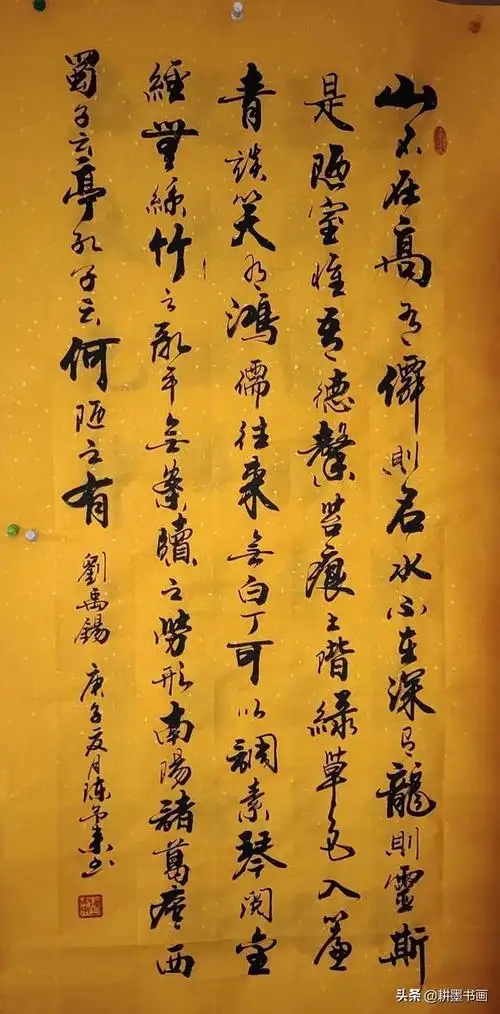 山不在高有僊則名水不在深有龍則靈斯
是陋室惟吾德馨苔痕上階綠草色入簾
青談笑有鴻儒往來无白丁可以調素琴閱金
經無絲竹之亂耳无案牘之勞形南陽諸葛廬西
蜀子云亭孔子云何陋之有
劉禹錫 庚子夏月陳书
头条 @耕墨书画